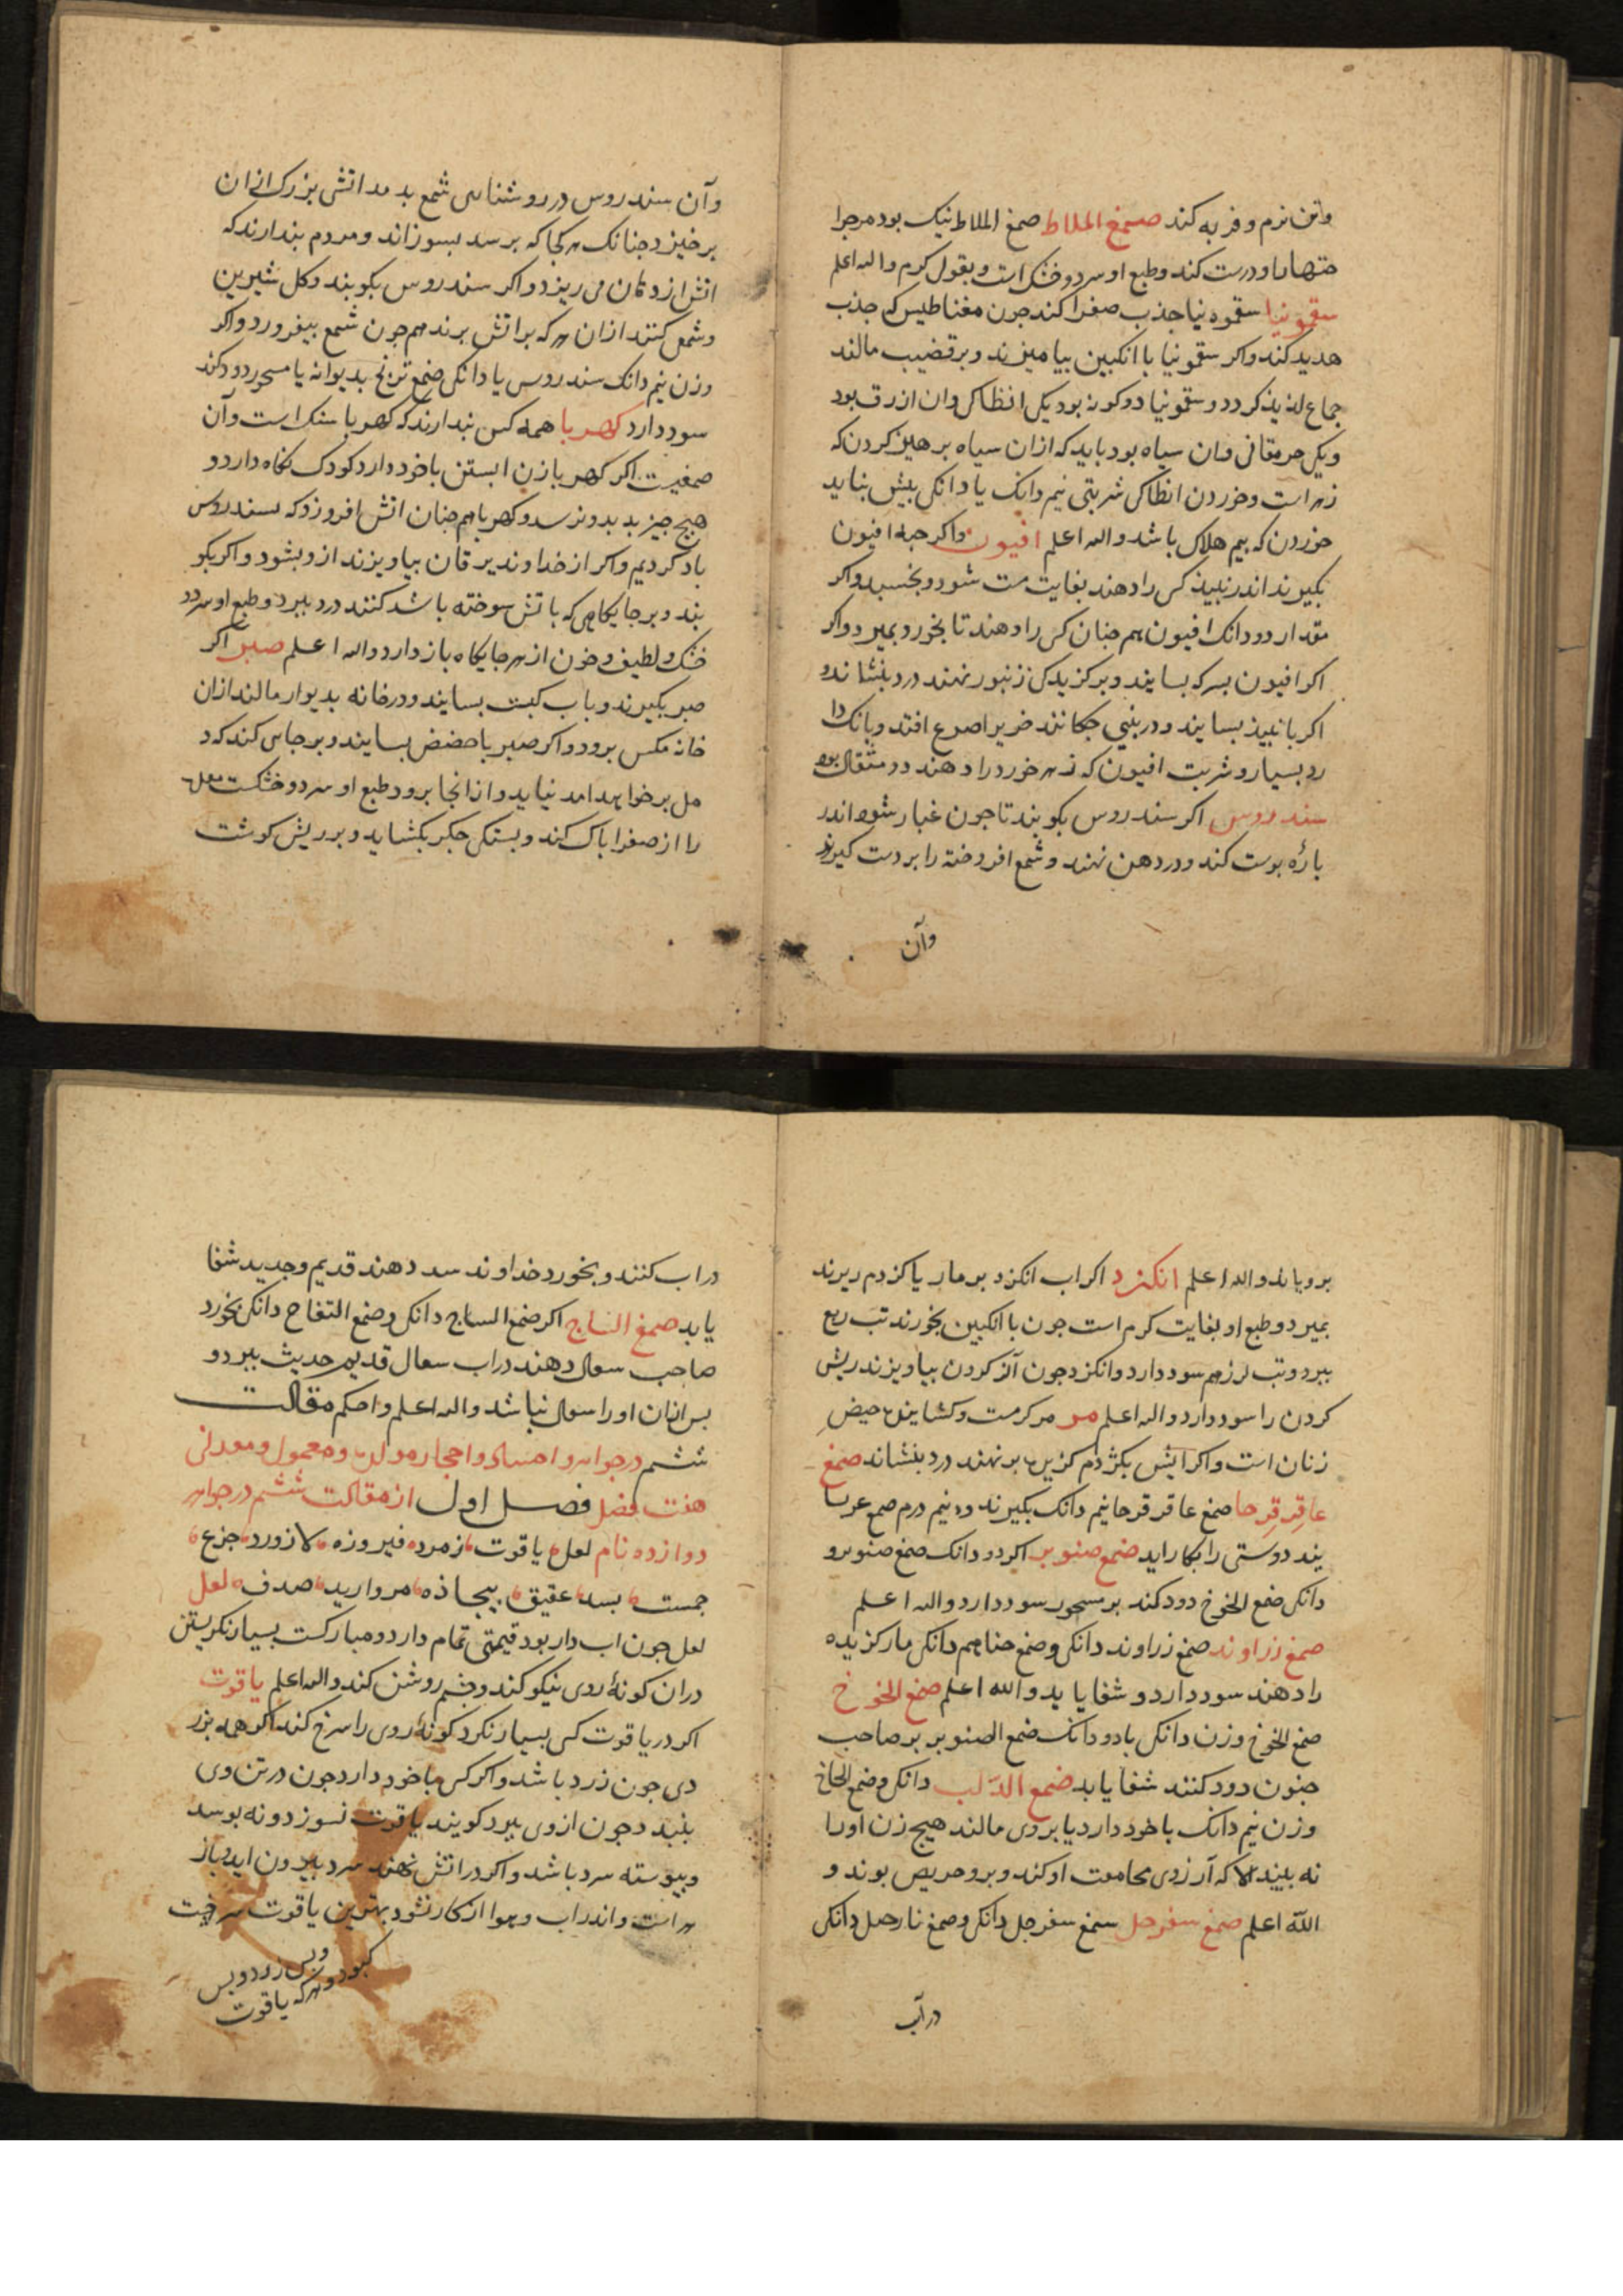 وتن نرم و فربه کند صمغ الملاط صمغ الملاط نیک بود مر جرا
حتهارا و درست کند و طبع او سرد و خشک است و بقول کرم والله اعلم
سقمونیا سقمونیا جذب صفرا کند جون مغناطیس که جذب
حدید کند واکر سقمونیا با انکبین بیامیزند و بر قضیب مالند
جماع لذیذ کردد و سقمونیا دو کونه بود یکی انطاکی وان ازرق بود
ویکی جرمقانی وان سیاه بود باید که ازان سیاه برهیز کردن که
زهر است وخوردن انطاکی شربتی نیم دانک یا دانکی بیش نباید
خوردن که بیم هلاک باشد والله اعلم افیون واکر حبه افیون
بکیرند اندر نبیذ کسی را دهند بغایت مست شود و بخسبد واکر
مقدار دو دانک افیون هم جنان کسی را دهند تا بخورد بمیرد واکر
اکر افیون بسرکه بسایند و بر کزیدکی زنبور نهند درد بنشاند و
اکر با نبیذ بسایند و در بینی جکانند خریرا صرع افتد و بانک دا
رد بسیار و شربت افیون که زهر خورد را دهند دو مثقال بود
سندروس اکر سندروس بکوبند تا جون غبار شود اندر
باره بوست کند و در دهن نهند و شمع افروخته را بر دست کیرند
وآن
وآن سندروس در روشنایی شمع بدمد اتشی بزرک ازان
برخیزد جنانک هر کجا که برسد بسوزاند و مردم بندارند که
اتش از دهان می ریزد واکر سندروس بکوبند وکل شیرین
و شمع کنند ازان هر که بر اتش برند هم جون شمع بیفروزد واکر
وزن نیم دانک سندروس یا دانکی صمغ ترنج بدیوانه یا مسحور دود کند
سود دارد کهربا همه کس بندارند که کهربا سنک است وآن
صمغیست اکر کهربا زن ابستن با خود دارد کودک نکاه دارد و
هیج جیز بد بدو نرسد و کهربا هم جنان اتش افروزد که سندروس
یاد کردیم واکر از خداوند یرقان بیاویزند ازو بشود واکر بکو
بند و بر جایکاهی که باتش سوخته باشد کنند درد ببرد و طبع او سرد
خشک و لطیف وخون از هر جایکاه باز دارد والله اعلم صبر اکر
صبر بکیرند و باب کبست بسایند و در خانه بدیوار مالند ازان
خانه مکس برود واکر صبر با حضض بسایند و بر جایی کند که د
مل بر خواهد امد نیاید و از انجا برود طبع او سرد و خشکست معده
را از صفرا باک کند و بستکی جکر بکشاید و بر ریش کوشت
برویاند والله اعلم انکزد اکر اب انکزد بر مار یا کزدم ریزند
بمیرد و طبع او بغایت کرم است جون با انکبین بخورند تب ربع
ببرد و تب لرز هم سود دارد وانکزد جون از کردن بیاویزند ریش
کردن را سود دارد والله اعلم مر مر کرمست و کشاینده حیض
زنان است واکر اتش بکژدم کزیده بر نهند درد بنشاند صمغ
عاقر قرحا صمغ عاقر قرحا نیم دانک بکیرند و نیم درم صمغ عرب
بند دوستی را بکار اید صمغ صنوبر اکر دو دانک صمغ صنوبر و
دانکی صمغ الخوخ دود کند بر مسحور سود دارد والله اعلم
صمغ زراوند صمغ زراوند دانکی و صمغ حنا هم دانکی مار کزیده
را دهند سود دارد و شفا یابد والله اعلم صمغ الخوخ
صمغ الخوخ وزن دانکی با دو دانک صمغ الصنوبر بر صاحب
جنون دود کنند شفا یابد صمغ الدلب دانکی و صمغ الحاج
وزن نیم دانک با خود دارد یا بروی مالند هیج زن اورا
نه بیند الا که آرزوی مجامعت او کند و برو حریص بوند و
الله اعلم صمغ سفرجل سمغ سفرجل دانکی و صمغ نارجیل دانکی
در آب
در اب کنند و بخورد خداوند سد دهند قدیم و جدید شفا
یابد صمغ الساج اکر صمغ الساج دانکی و صمغ التفاح دانکی بخورد
صاحب سعال دهند در اب سعال قدیم و حدیث ببرد و
بس ازان اورا سعال نباشد والله اعلم واحکم مقالت
ششم در جواهر و اجساد و احجار مولد و معمول و معدنی
هفت فصل فصل اول از مقالت ششم در جواهر
دوازده نام لعل یاقوت زمرد فیروزه لازورد جزع
جمست بسد عقیق بیجاذه مروارید صدف لعل
لعل جون اب دار بود قیمتی تمام دارد و مبارکست بسیار نکریستن
دران کونهٔ روی نیکو کند و جشم روشن کند والله اعلم یاقوت
اکر در یاقوت کسی بسیار نکرد کونهٔ روی را سرخ کند اکر همه بزر
دی جون زرد باشد واکر کسی با خود دارد جون در تن وی
بلبد جون ازوی ببرد کویند یاقوت نسوزد و نه بوسد
و بیوسته سرد باشد واکر در اتش نهند سرد بیرون اید و باز
هر است و اندر اب و هوا از کار نشود بهترین یاقوت سرخست
و بس زرد و بس
کبود و هر که یاقوت